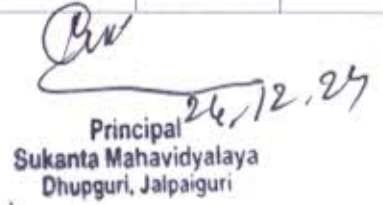 26.12.24
Principal
Sukanta Mahavidyalaya
Dhupguri, Jalpaiguri